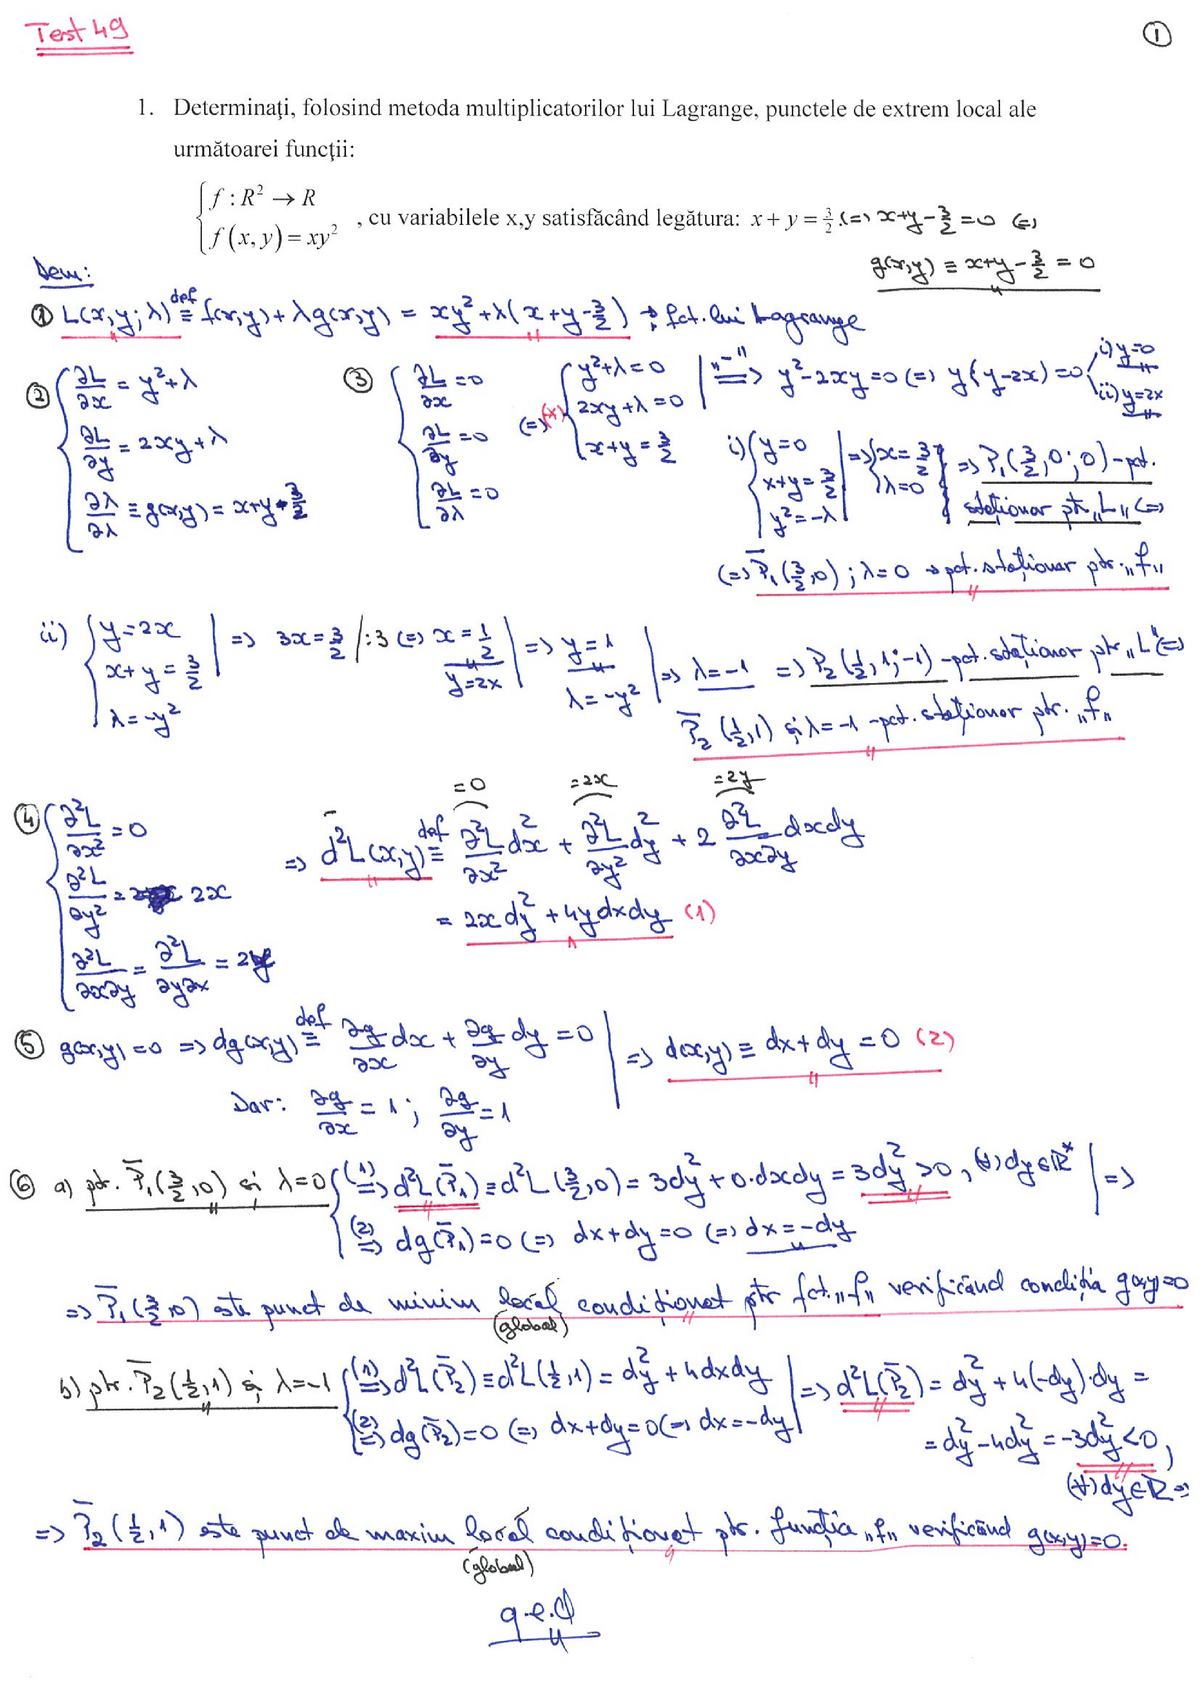 Test 49
①
1. Determinați, folosind metoda multiplicatorilor lui Lagrange, punctele de extrem local ale
următoarei funcții:
{ f : R² → R
f(x, y) = xy² , cu variabilele x,y satisfăcând legătura: x + y = 3/2 (=) x+y-3/2 = 0 (=)
g(x,y) ≡ x+y-3/2 = 0
Dem:
① L(x,y;λ) def≡ f(x,y)+λg(x,y) = xy²+λ(x+y-3/2) → fct. lui Lagrange
② { ∂L/∂x = y²+λ
∂L/∂y = 2xy+λ
∂L/∂λ ≡ g(x,y) = x+y-3/2
③ { ∂L/∂x =0
∂L/∂y =0
∂L/∂λ =0
(=) (*) { y²+λ=0
2xy+λ=0
x+y=3/2
| "-" => y²-2xy=0 (=) y(y-2x)=0
i) y=0
ii) y=2x
i) { y=0
x+y=3/2
y²=-λ
| => { x=3/2
λ=0 } => P₁(3/2,0;0)-pct.
staționar ptr „L„ (=)
(=) P̄₁(3/2,0) ; λ=0 → pct. staționar ptr. „f„
ii) { y=2x
x+y=3/2
λ=-y²
| => 3x=3/2 /:3 (=) x=1/2
y=2x
| => y=1
λ=-y²
| => λ=-1 => P₂(1/2,1;-1)-pct. staționar ptr „L" (=)
P̄₂(1/2,1) și λ=-1 -pct. staționar ptr. „f„
=0 =2x =2y
④ { ∂²L/∂x² =0
∂²L/∂y² = 2x
∂²L/∂x∂y = ∂²L/∂y∂x = 2y
=> d²L(x,y) def≡ ∂²L/∂x² dx² + ∂²L/∂y² dy² + 2 ∂²L/∂x∂y dxdy
= 2x dy² + 4y dxdy (1)
⑤ g(x,y)=0 => dg(x,y) def≡ ∂g/∂x dx + ∂g/∂y dy = 0
Dar: ∂g/∂x = 1 ; ∂g/∂y = 1
| => d(x,y) ≡ dx+dy = 0 (2)
⑥ a) ptr. P̄₁(3/2,0) și λ=0 { (1)=> d²L(P̄₁) ≡ d²L(3/2,0) = 3dy²+0·dxdy = 3dy²>0, (∀) dy∈R* | =>
(2)=> dg(P̄₁)=0 (=) dx+dy=0 (=) dx=-dy
=> P̄₁(3/2,0) este punct de minim local condiționat ptr fct. „f„ verificând condiția g(x,y)=0
(global)
b) ptr. P̄₂(1/2,1) și λ=-1 { (1)=> d²L(P̄₂) ≡ d²L(1/2,1) = dy²+4dxdy | => d²L(P̄₂) = dy²+4(-dy)·dy =
(2)=> dg(P̄₂)=0 (=) dx+dy=0 (=) dx=-dy
= dy²-4dy² = -3dy²<0,
(∀) dy∈R =>
=> P̄₂(1/2,1) este punct de maxim local condiționat ptr. funcția „f„ verificând g(x,y)=0.
(global)
q.e.d